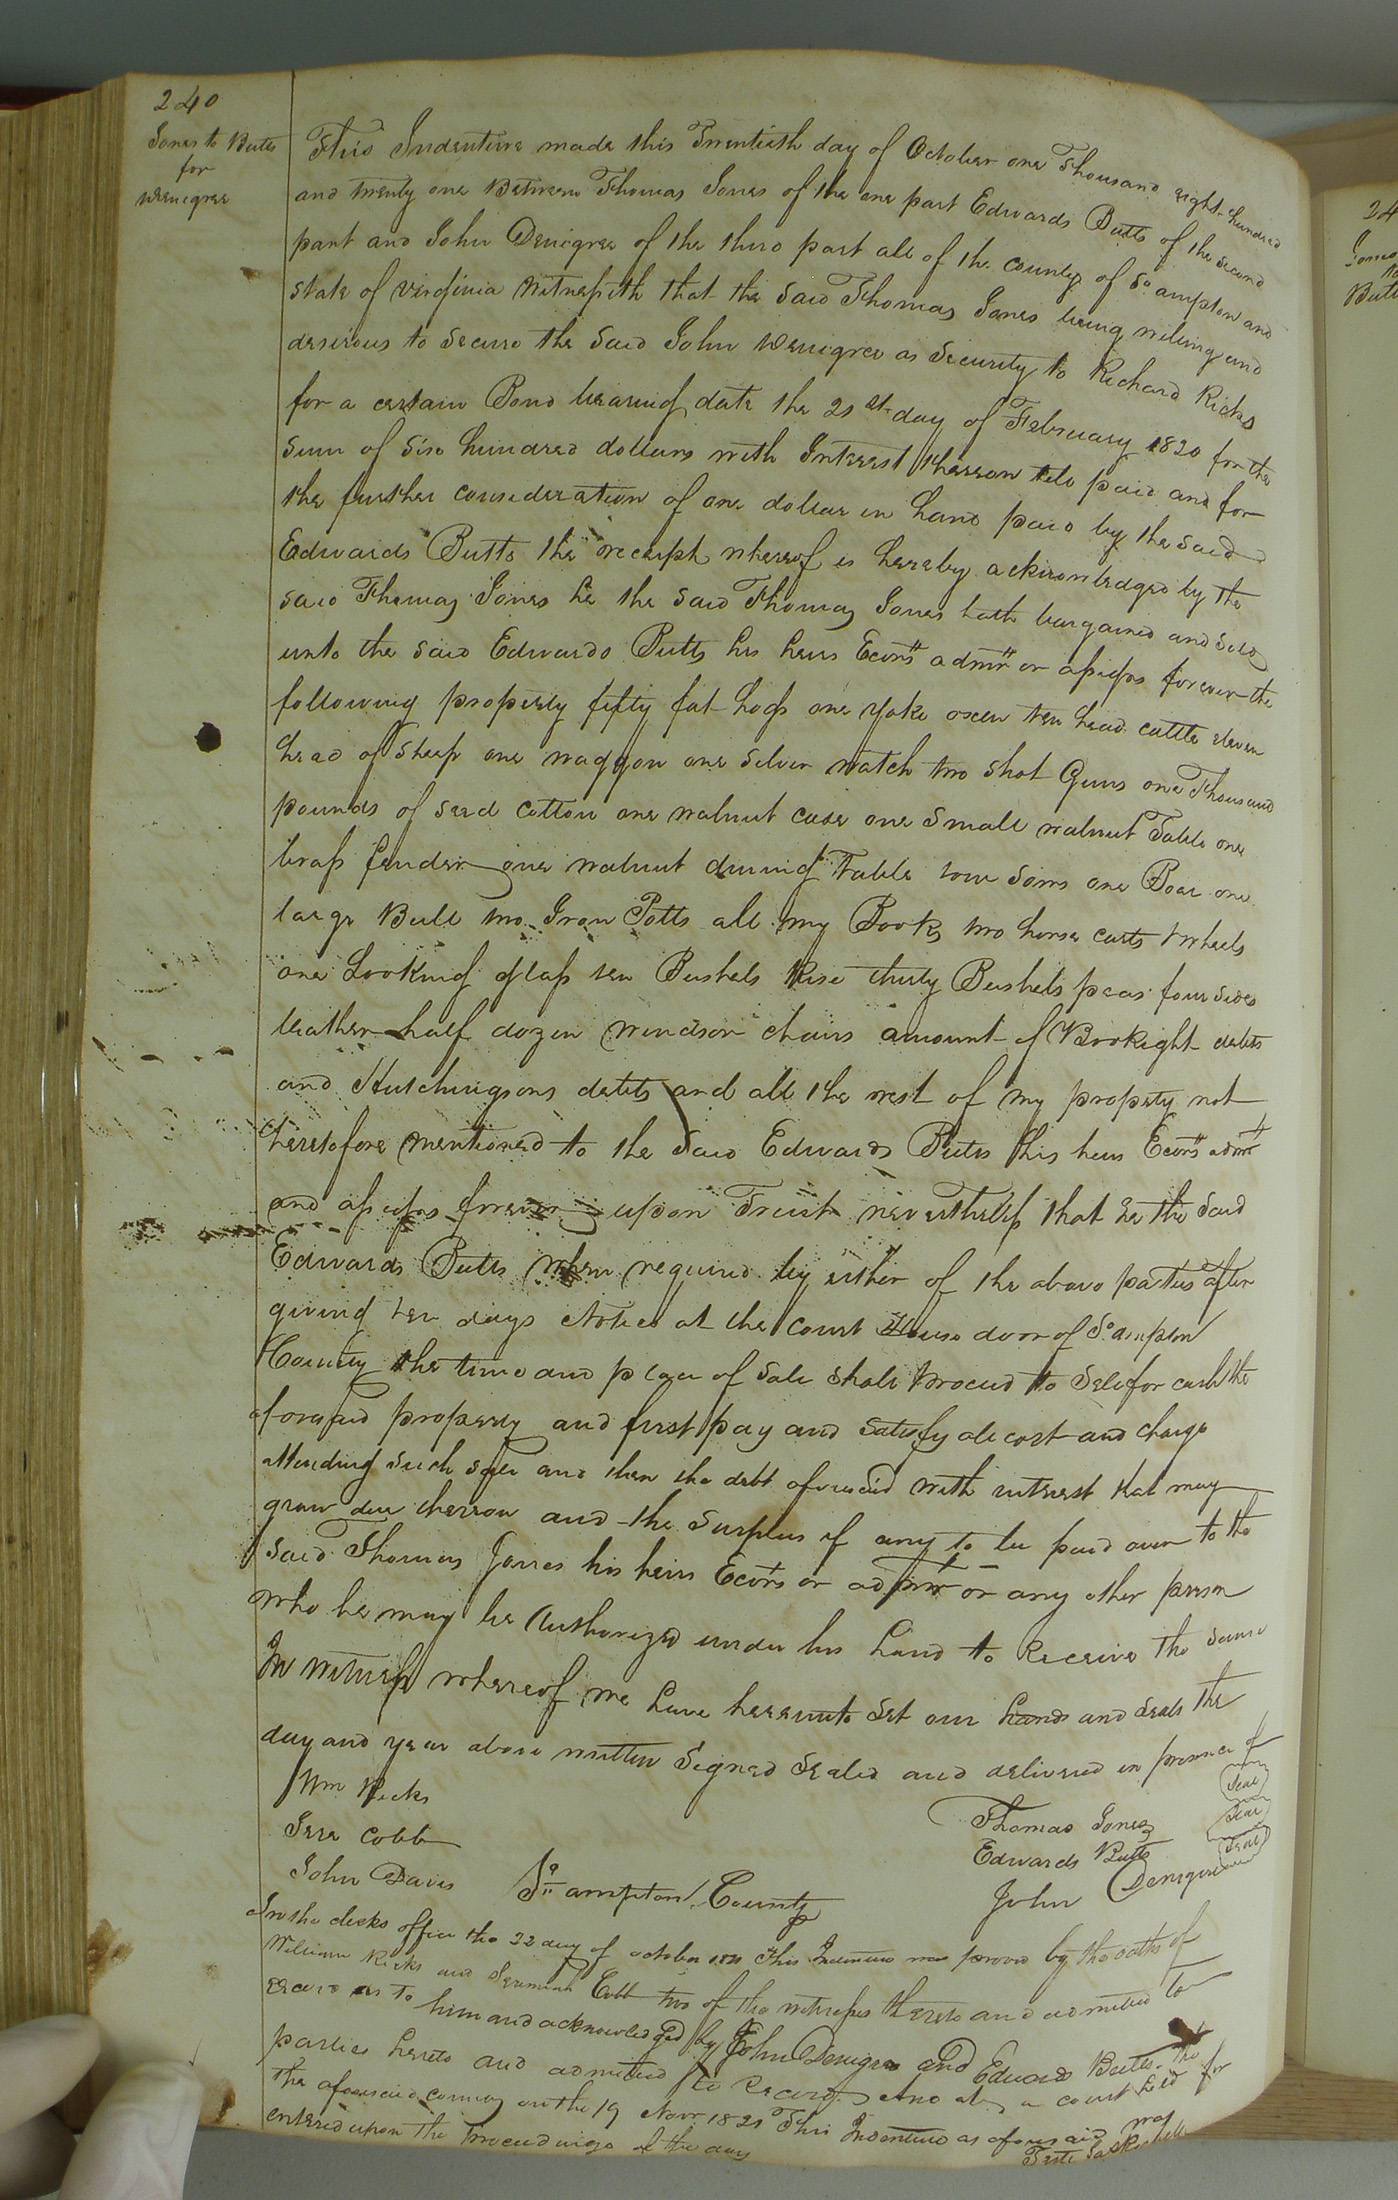 240
Jones to Butts
for
Denegree
This Indenture made this Twentieth day of October one Thousand eight hundred
and twenty one Between Thomas Jones of the one part Edwards Butts of the second
part and John Denegree of the third part all of the county of So ampton and
state of Virginia Witnesseth that the said Thomas Jones being willing and
desirous to secure the said John Denegree as security to Richard Ricks
for a certain Bond bearing date the 21st day of February 1820 for the
sum of six hundred dollars with Interest thereon till paid and for
the further consideration of one dollar in hand paid by the said
Edwards Butts the receipt whereof is hereby acknowledged by the
said Thomas Jones he the said Thomas Jones hath bargained and sold
unto the said Edwards Butts his heirs Ecors admrs or assigns forever the
following property fifty fat hogs one yoke oxen ten head cattle eleven
head of sheep one waggon one silver watch two shot Guns one Thousand
pounds of seed cotton one walnut case one small walnut Table one
brass fender one walnut dining Table sows one Boar one
large Bull two Iron Potts all my Books two horse carts & wheels
one Looking glass ten Bushels Rise thirty Bushels peas four sides
leather half dozen windsor chairs amount of debts
and Hutchingsons debts and all the rest of my propety not
heretofore mentioned to the said Edwards Butts his heirs Ecors admrs
and assigns forever upon Trust nevertheless that he the said
Edwards Butts when required by either of the above parties after
giving ten days Notice at the court House door of So ampton
County the time and place of sale shall proceed to sell for cash the
aforesaid property and first pay and satisfy all cost and charge
attending such sale and then the debt aforesaid with interest that may
grow due thereon and the surplus if any to be paid over to the
said Thomas Jones his heirs Ecors or admrs or any other person
who he may be Authorized under his hand to Receive the same
In witness whereof we have hereunto set our hands and seals the
day and year above written Signed Sealed and delivered in presence of
Wm Ricks
Jere Cobb
John Davis
Thomas Jones Seal
Edwards Butts Seal
John Denegree Seal
So ampton County
In the clerks office the 22 day of october 1821 This Indenture was proved by the oaths of
William Ricks and Jeremiah Cobb two of the witnesses thereto and admitted to
record as to him and acknowledged by John Denegree and Edwards Butts the
parties hereto and admitted to Record And at a court held for
the aforesaid county on the 19 Novr 1821 This Indenture as aforesaid was
entered upon the proceedings of the day
Teste
24
Jones
Butts